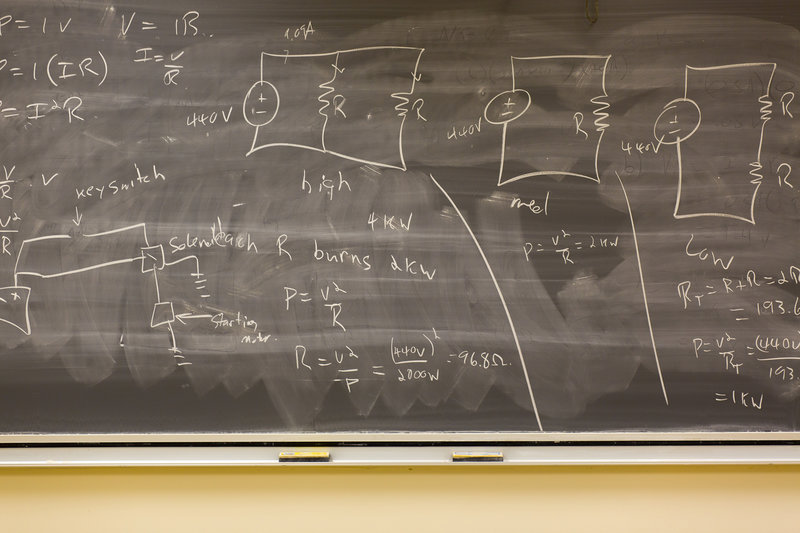 P = IV
V = IR
I = V/R
P = I(IR)
P = I²R
V/R . V
V²/R
keyswitch
solenoid
starting
motor
440V
R
R
high
4KW
each R burns 2KW
P = V²/R
R = V²/P = (440V)²/2000W = 96.8Ω.
440V
R
med
P = V²/R = 2KW
440V
R
R
Low
R_T = R + R = 2R
= 193.6
P = V²/R_T = (440V)/193.
= 1KW